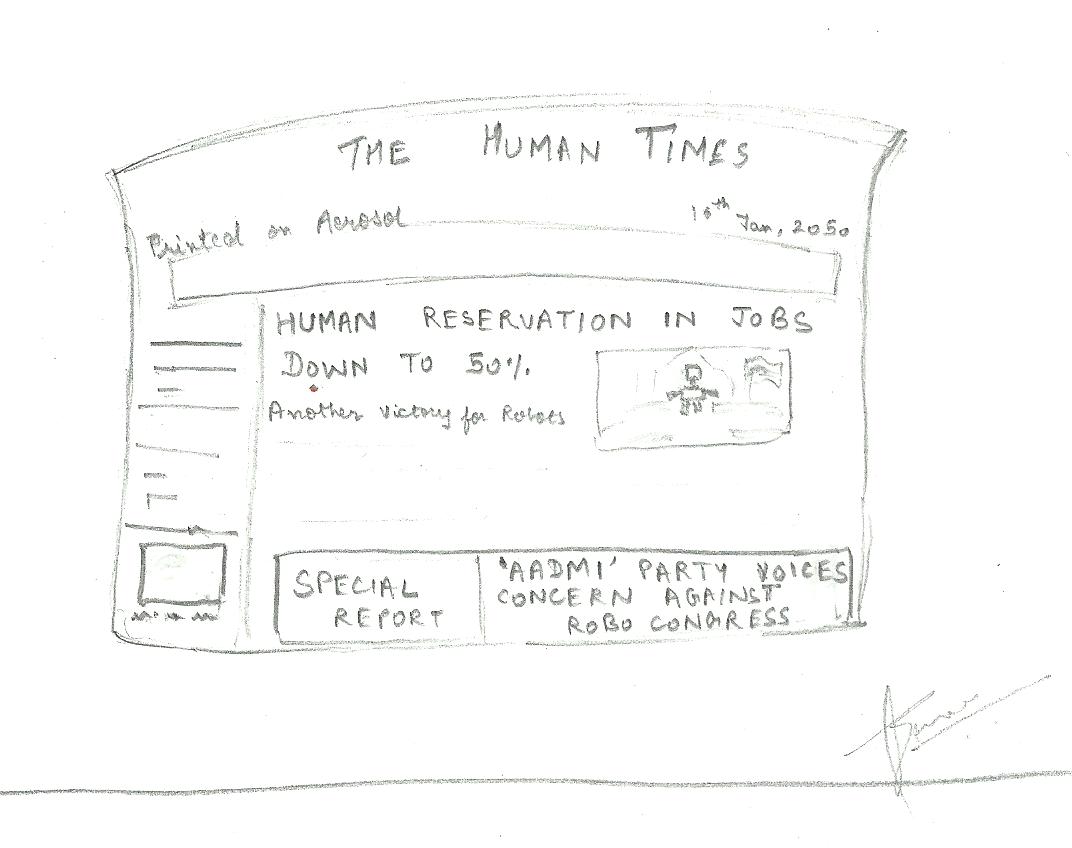 THE HUMAN TIMES
Printed on Aerosol
16th Jan, 2050
HUMAN RESERVATION IN JOBS
DOWN TO 50%.
Another Victory for Robots
SPECIAL
REPORT
'AADMI' PARTY VOICES
CONCERN AGAINST
ROBO CONGRESS